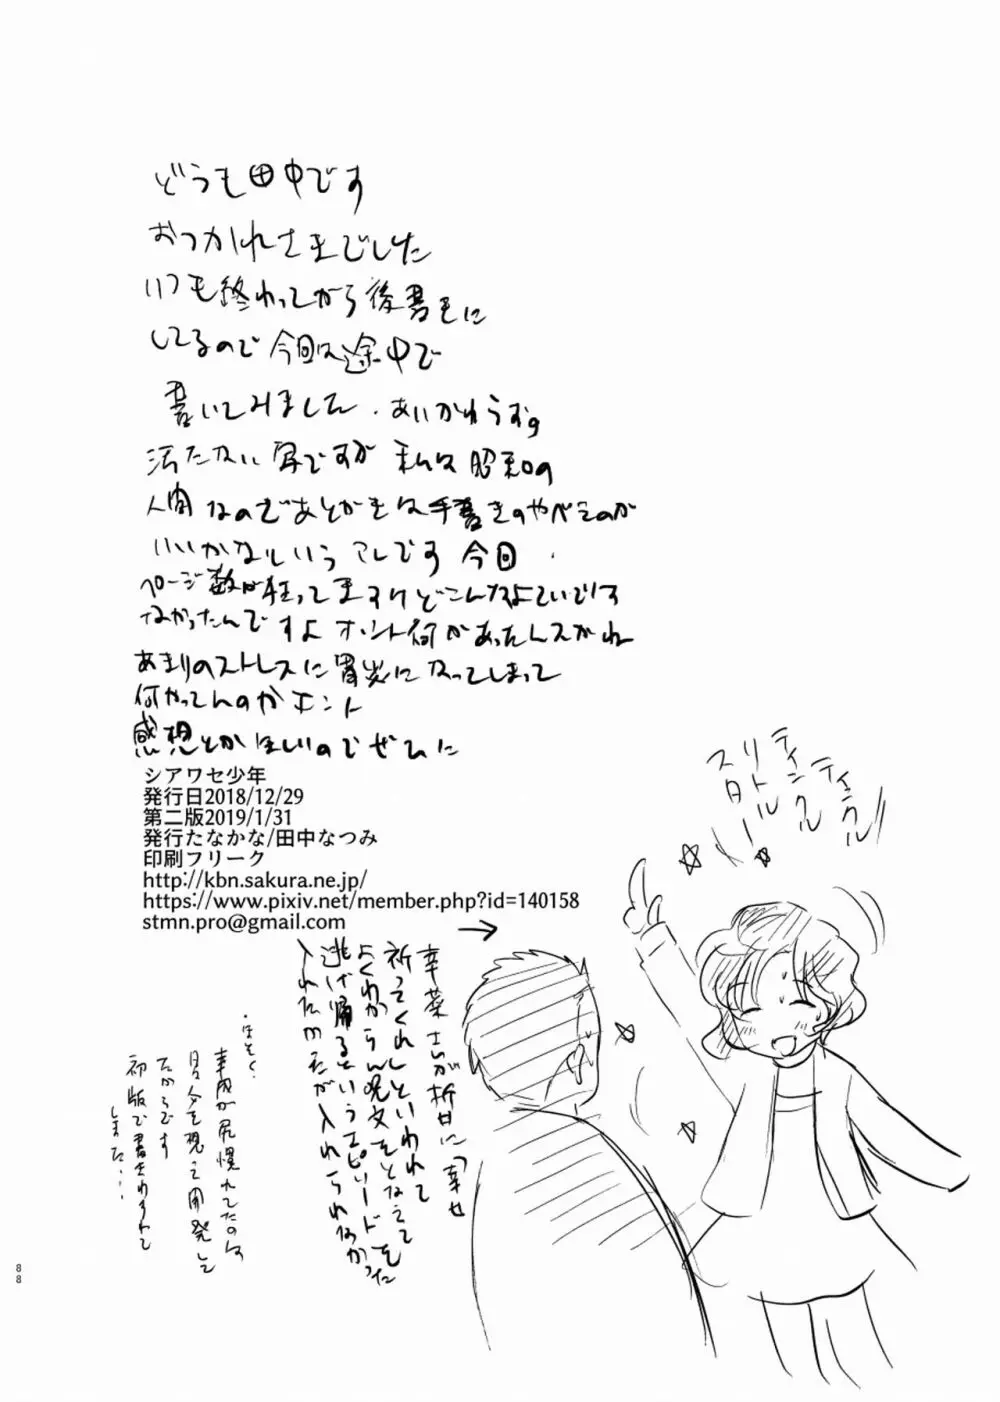 どうも田中です
おつかれさまでした
いつも終わってから後書きに
してるので今回は途中で
書いてみました。あいかわらずの
汚たない字ですが私は昭和の
人間なのであとがきは手書きのやべえのが
いいかなという アレです 今回
ページ数が狂ってますけどこんなよていでは
なかったんですよホント何があったんスかね
あまりのストレスに胃炎になってしまって
何やってんのかホント
感想とかほしいのでぜひに
シアワセ少年
発行日2018/12/29
第二版2019/1/31
発行たなかな/田中なつみ
印刷フリーク
http://kbn.sakura.ne.jp/
https://www.pixiv.net/member.php?id=140158
stmn.pro@gmail.com
ティンクル
ティンクル
リトル
スター
幸
さんが
に「幸せ
祈ってくれ」といわれて
よくわからん呪文をとなえて
逃げ帰るというエピソードを
入れたかったが入れられなかった
・ほそく・
が尻慣れてたのは
自分を想って開発して
たからです
初版で書きわすれて
しまた…
88